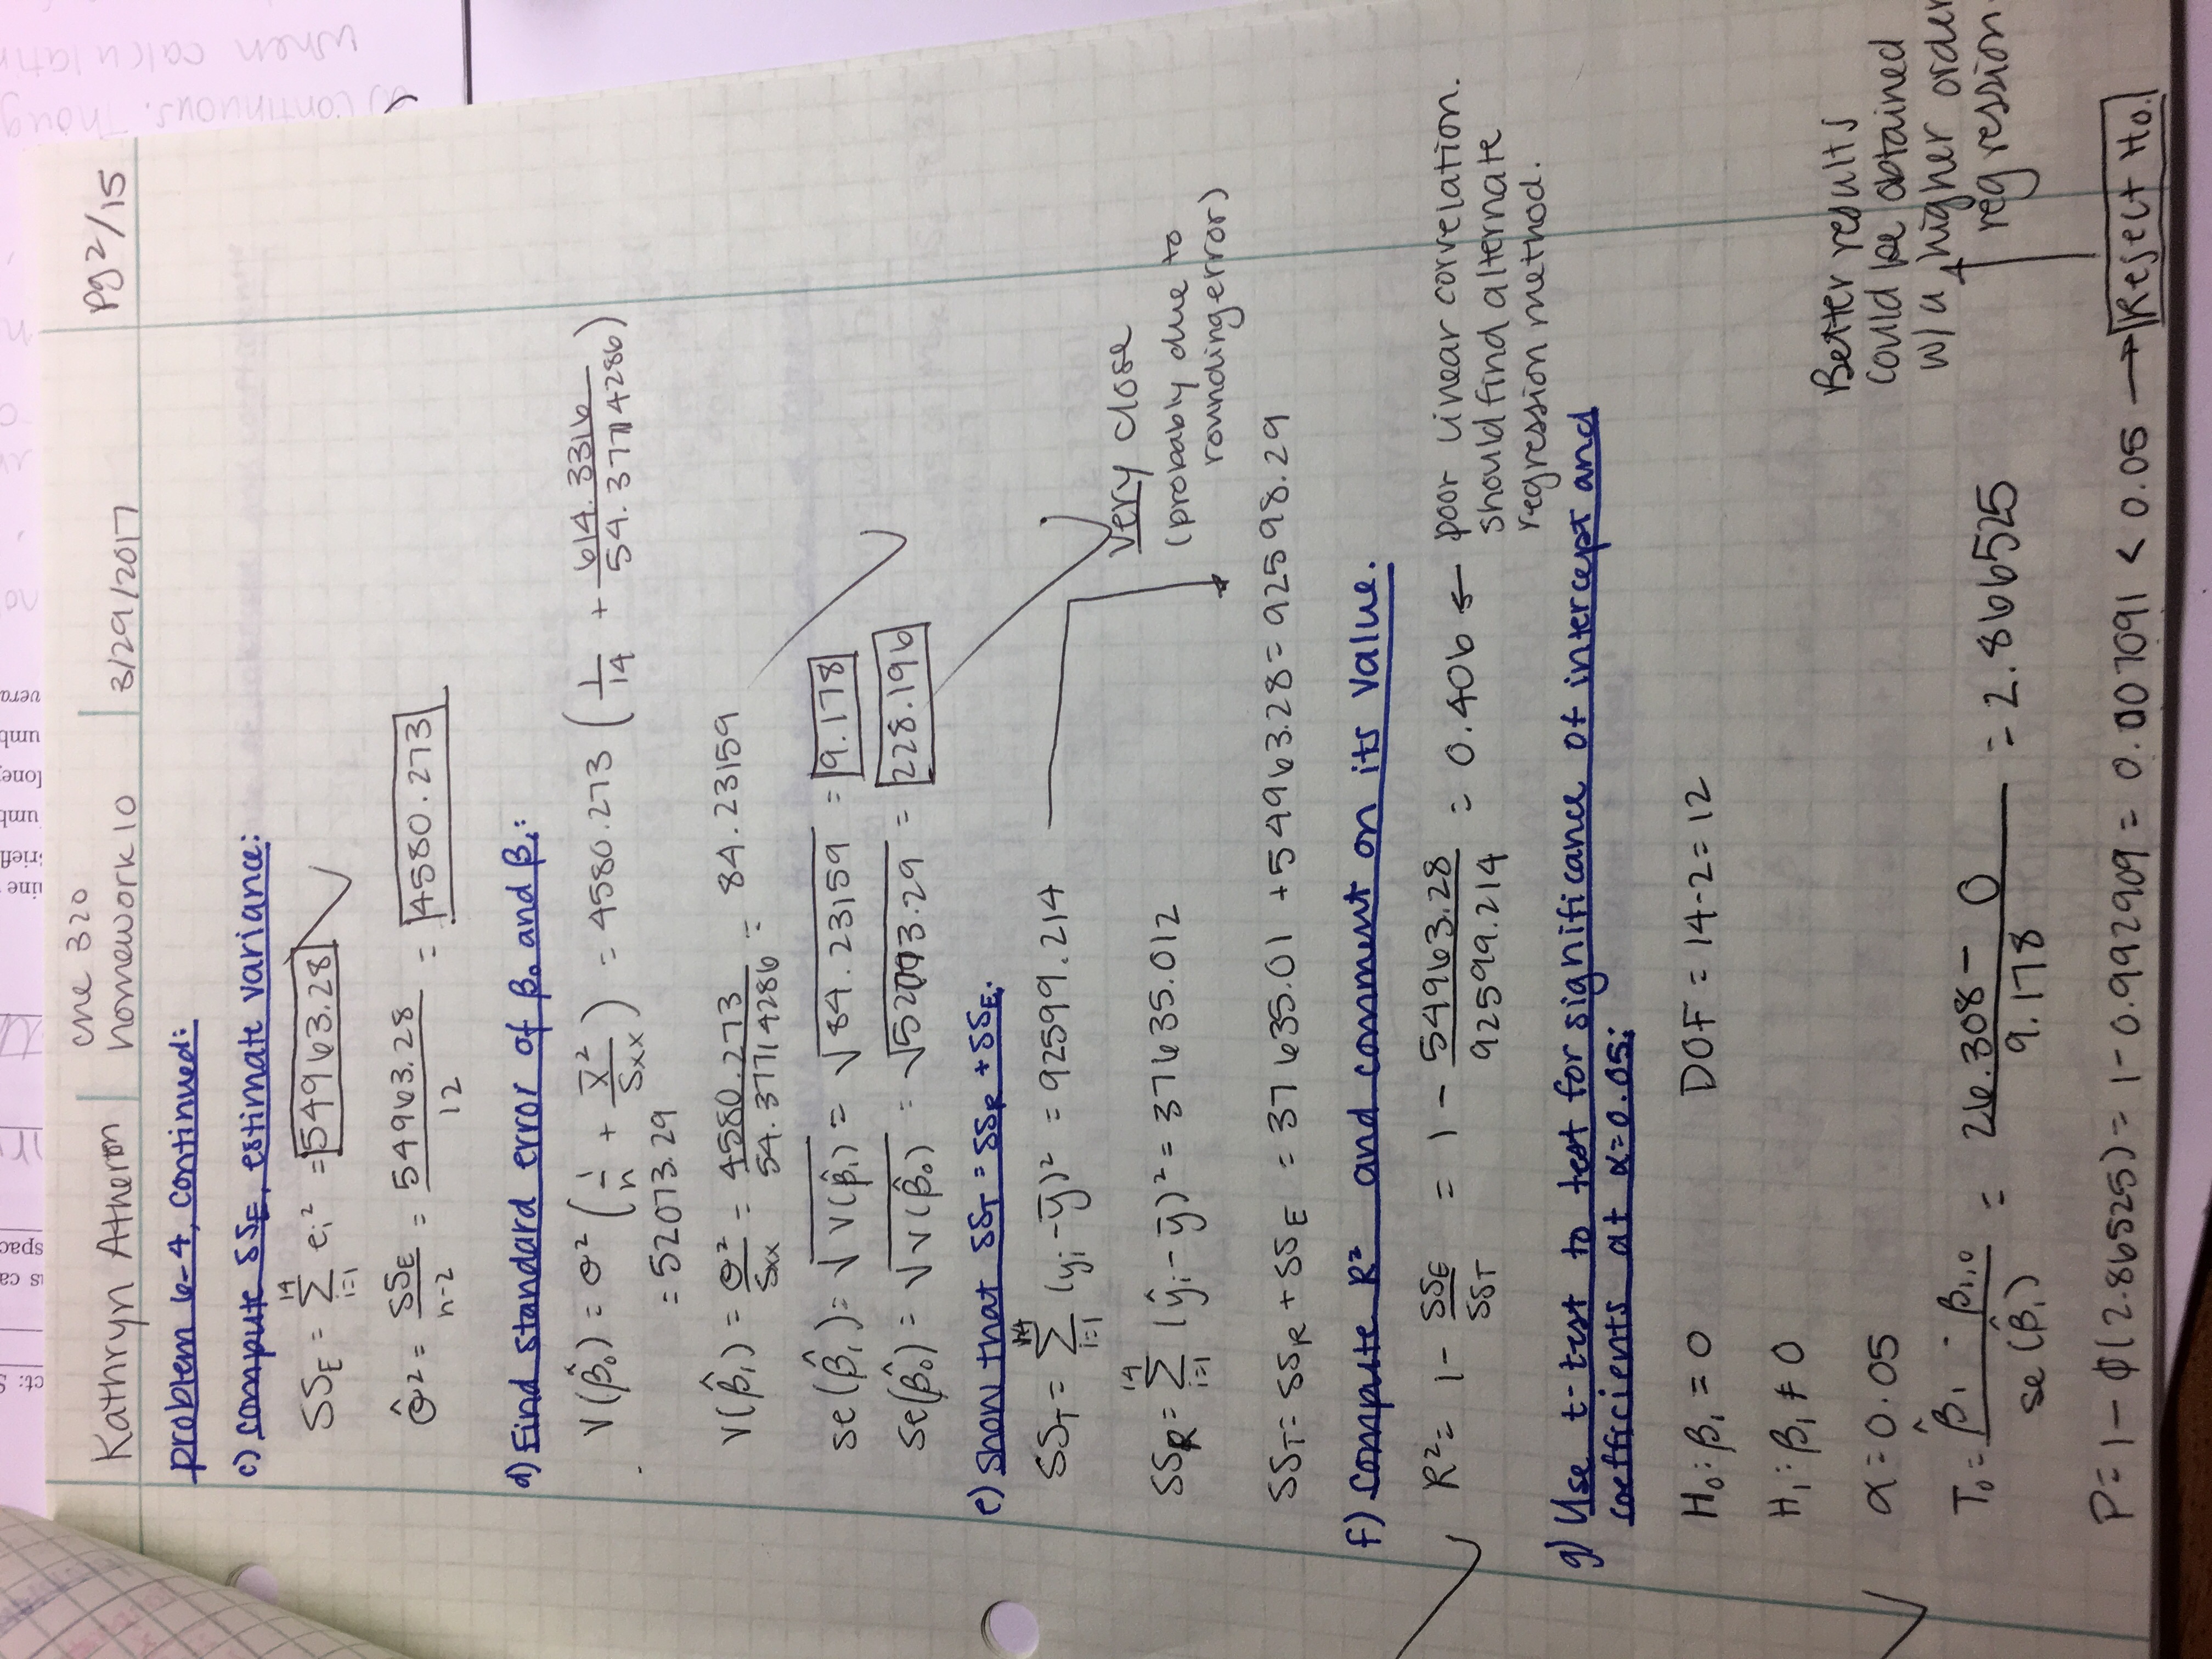 Kathryn Atherton
che 320
homework 10
3/29/2017
pg 2/15
problem 6-4, continued:
c) compute SS_E, estimate variance:
SS_E = Σ_{i=1}^{14} e_i² = 54963.28
σ̂² = SS_E / n-2 = 54963.28 / 12 = 4580.273
d) Find standard error of β₀ and β₁:
V(β̂₀) = σ² (1/n + x̄²/S_xx) = 4580.273 (1/14 + 614.3316/54.37714286)
= 52073.29
V(β̂₁) = σ²/S_xx = 4580.273/54.37714286 = 84.23159
se(β̂₁) = √V(β̂₁) = √84.23159 = 9.178
se(β̂₀) = √V(β̂₀) = √52073.29 = 228.196
e) Show that SS_T = SS_R + SS_E.
SS_T = Σ_{i=1}^{14} (y_i - ȳ)² = 92599.214
very close
(probably due to
rounding error)
SS_R = Σ_{i=1}^{14} (ŷ_i - ȳ)² = 37635.012
SS_T = SS_R + SS_E = 37635.01 + 54963.28 = 92598.29
f) compute R² and comment on its value.
R² = 1 - SS_E/SS_T = 1 - 54963.28/92599.214 = 0.406 ← poor linear correlation.
should find alternate
regression method.
g) Use t-test to test for significance of intercept and
coefficients at α=0.05:
H₀: β₁ = 0 DOF = 14-2 = 12
H₁: β₁ ≠ 0
α = 0.05
T₀ = β̂₁ - β₁,₀ / se(β̂₁) = 26.308 - 0 / 9.178 = 2.866525
Better results
could be obtained
w/ a higher order
regression.
P = 1 - Φ(2.86525) = 1 - 0.992909 = 0.007091 < 0.05 → Reject H₀.
ct: S
is ca
spac
ine
riefl
umb
[one
umb
vera
continuous. Thoug
when calculatin